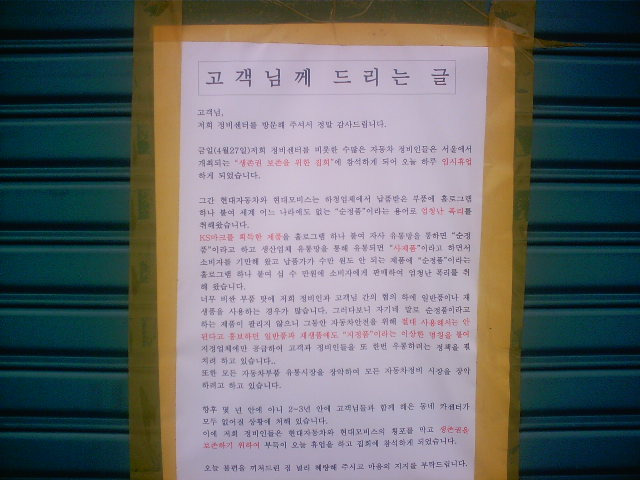 고객님께 드리는 글
고객님,
저희 정비센터를 방문해 주셔서 정말 감사드립니다.
금일(4월27일)저희 정비센터를 비롯한 수많은 자동차 정비인들은 서울에서
개최되는 "생존권 보존을 위한 집회"에 참석하게 되어 오늘 하루 임시휴업
하게 되었습니다.
그간 현대자동차와 현대모비스는 하청업체에서 납품받은 부품에 홀로그램
하나 붙여 세계 어느 나라에도 없는 "순정품"이라는 용어로 엄청난 폭리를
취해왔습니다.
KS마크를 획득한 제품을 홀로그램 하나 붙여 자사 유통망을 통하면 "순정
품"이라고 하고 생산업체 유통망을 통해 유통되면 "사제품"이라고 하면서
소비자를 기만해 왔고 납품가가 수만 원도 안 되는 제품에 "순정품"이라는
홀로그램 하나 붙여 십 수 만원에 소비자에게 판매하여 엄청난 폭리를 취
해 왔습니다.
너무 비싼 부품 탓에 저희 정비인과 고객님 간의 협의 하에 일반품이나 재
생품을 사용하는 경우가 많습니다. 그러다보니 자기네 말로 순정품이라고
하는 제품이 팔리지 않으니 그동안 자동차안전을 위해 절대 사용해서는 안
된다고 홍보하던 일반품과 재생품에도 "지정품"이라는 이상한 명칭을 붙여
지정업체에만 공급하여 고객과 정비인들을 또 한번 우롱하려는 정책을 펼
치려 하고 있습니다..
또한 모든 자동차부품 유통시장을 장악하여 모든 자동차정비 시장을 장악
하려고 하고 있습니다.
향후 몇 년 안에 아니 2-3년 안에 고객님들과 함께 해온 동네 카센터가
모두 없어질 상황에 처해 있습니다.
이에 저희 정비인들은 현대자동차와 현대모비스의 횡포를 막고 생존권을
보존하기 위하여 부득이 오늘 휴업을 하고 집회에 참석하게 되었습니다.
오늘 불편을 끼쳐드린 점 널리 헤량해 주시고 마음의 지지를 부탁드립니다.